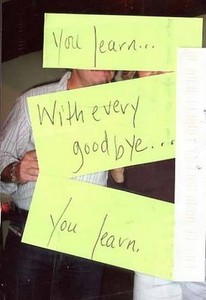 You learn...
With every
goodbye...
You learn.